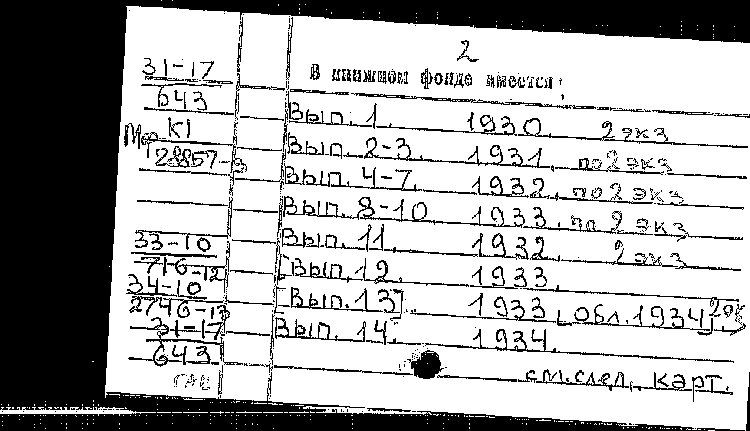 2
В книжном фонде имеется:
31-17
643
Вып. 1. 1930. 2 экз
К1
Вып. 2-3. 1931. по 2 экз
28857-3
Вып. 4-7. 1932. по 2 экз
Вып. 8-10. 1933. по 2 экз
33-10
Вып. 11. 1932. 2 экз
716-12
[Вып. 12. 1933.
34-10
2746-13
[Вып. 13]. 1933 [Обл. 1934]. 2 эк
31-17
Вып. 14. 1934.
643
см. след. карт.